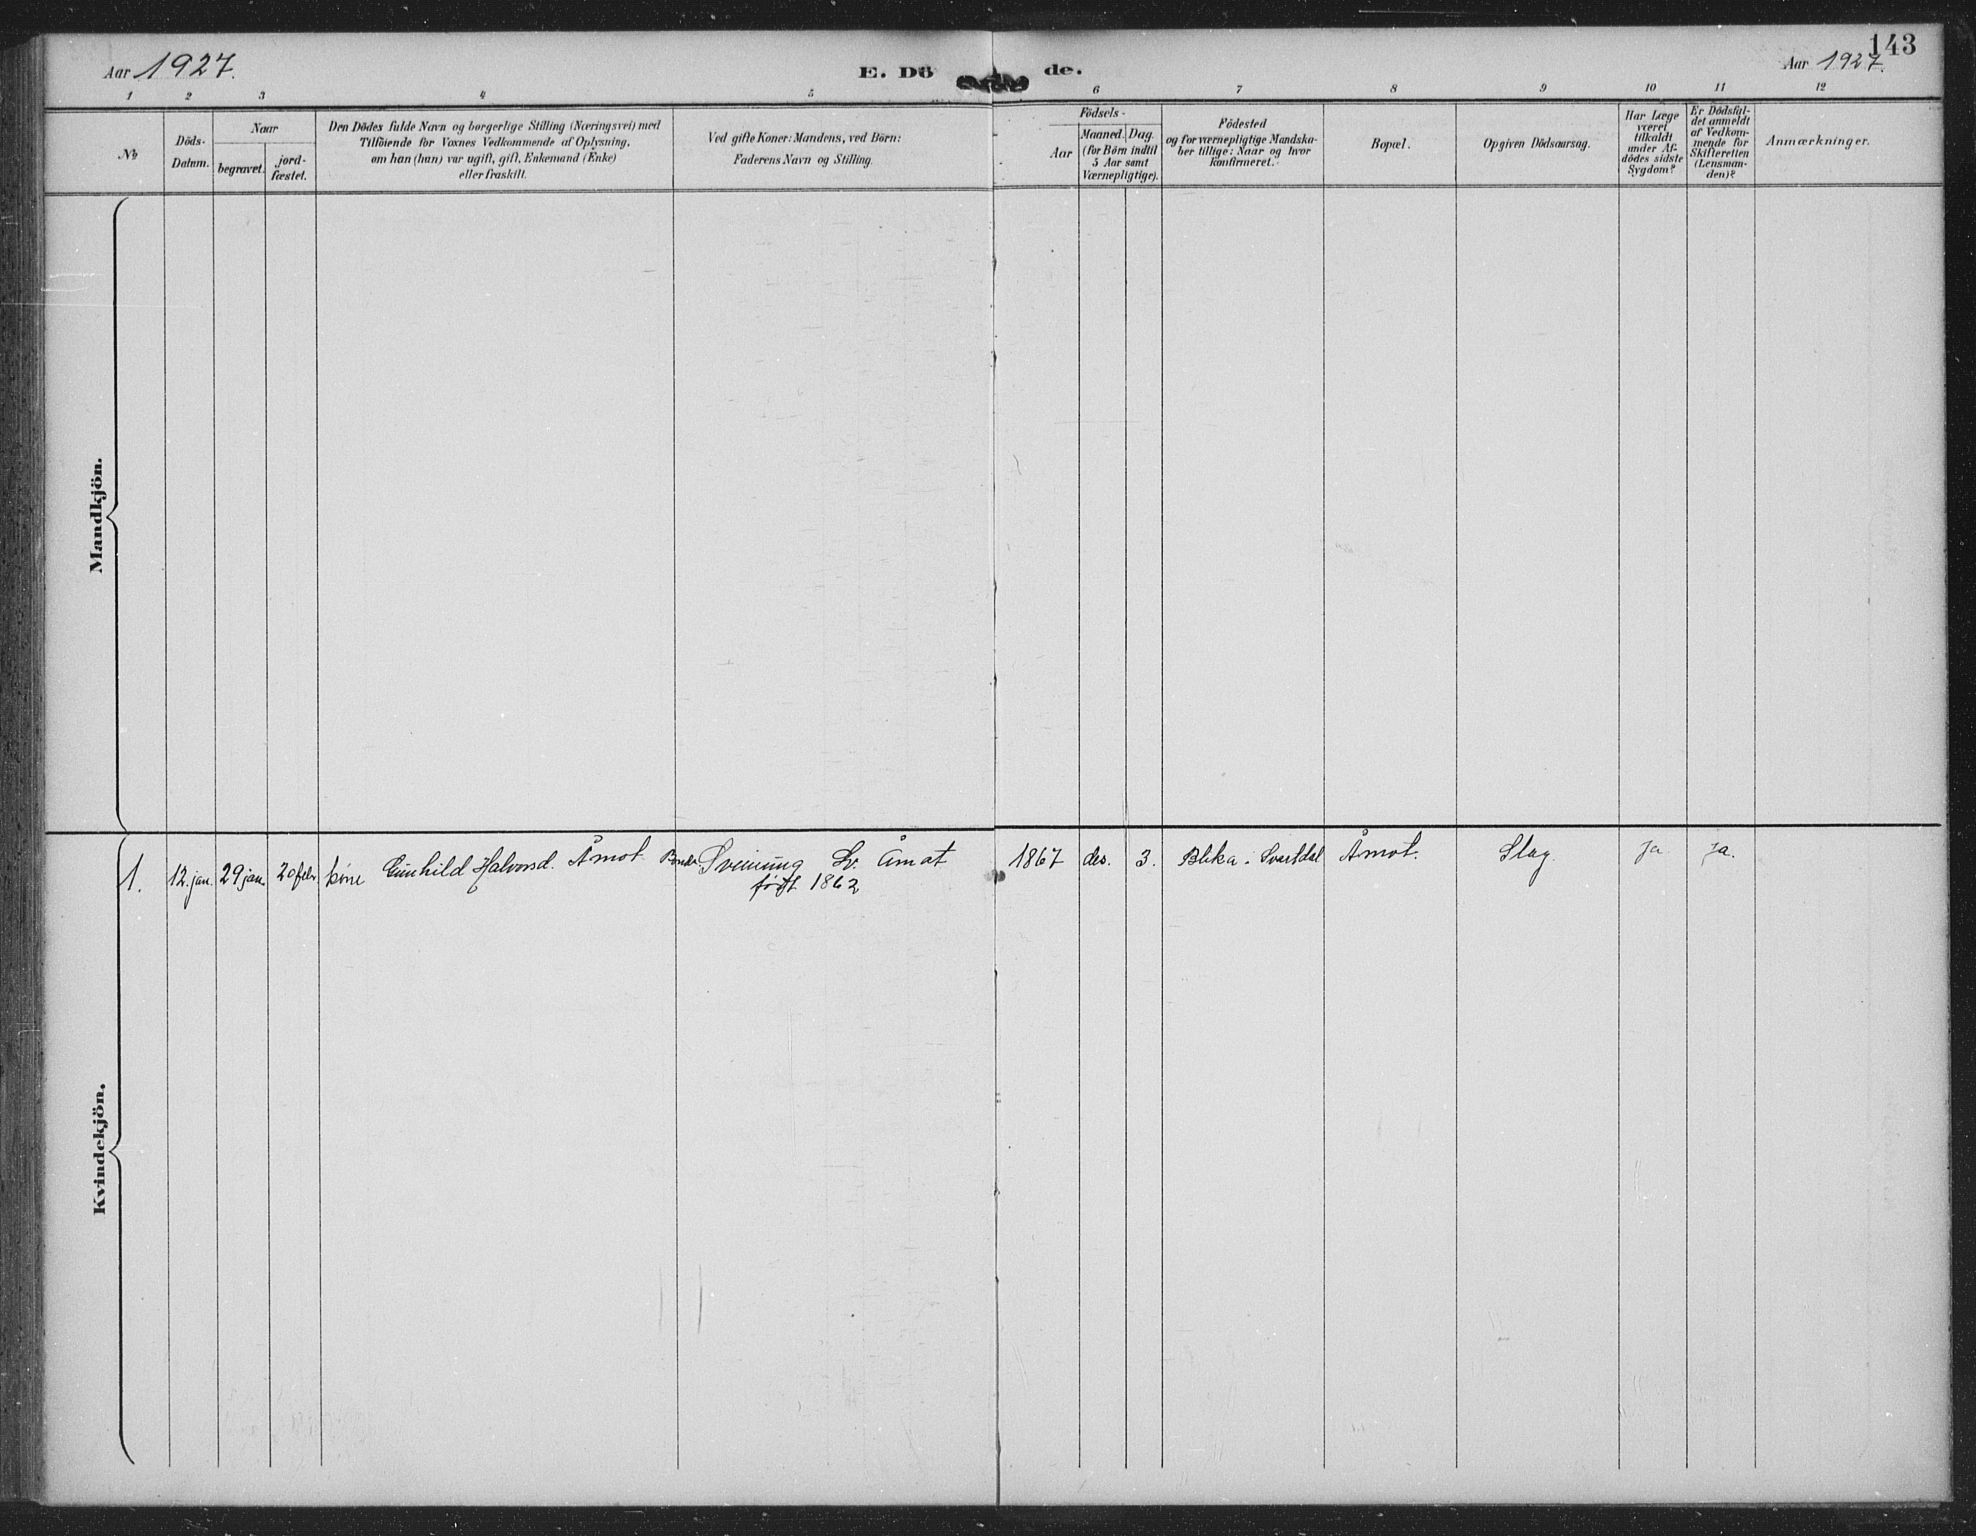 143
Aar 1927.
E. Döde.
Aar 1927.
1 2 3 4 5 6 7 8 9 10 11 12
No.
Döds-
Datum.
Naar
begravet.
jord-
fæstet.
Den Dödes fulde Navn og borgerlige Stilling (Næringsvei) med
Tilföiende for Voxnes Vedkommende af Oplysning,
om han (hun) var ugift, gift, Enkemand (Enke)
eller fraskilt.
Ved gifte Koner: Mandens, ved Börn:
Faderens Navn og Stilling.
Födsels-
Aar
Maaned. Dag.
(for Börn indtil
5 Aar samt
Værnepligtige).
Födested
og for værnepligtige Mandska-
ber tillige: Naar og hvor
konfirmeret.
Bopæl.
Opgiven Dödsaarsag.
Har Læge
været
tilkaldt
under Af-
dödes sidste
Sygdom?
Er Dödsfal-
det anmeldt
af Vedkom-
mende for
Skifteretten
(Lensman-
den)?
Anmærkninger.
Mandkjön.
Kvindekjön.
1. 12. jan. 29 jan. 20 febr kone Gunhild Halvorsd. Åmot Bonde Sveinung Åmot 1867 des. 3. Svartdal Åmot. Slag Ja Ja.
født 1862